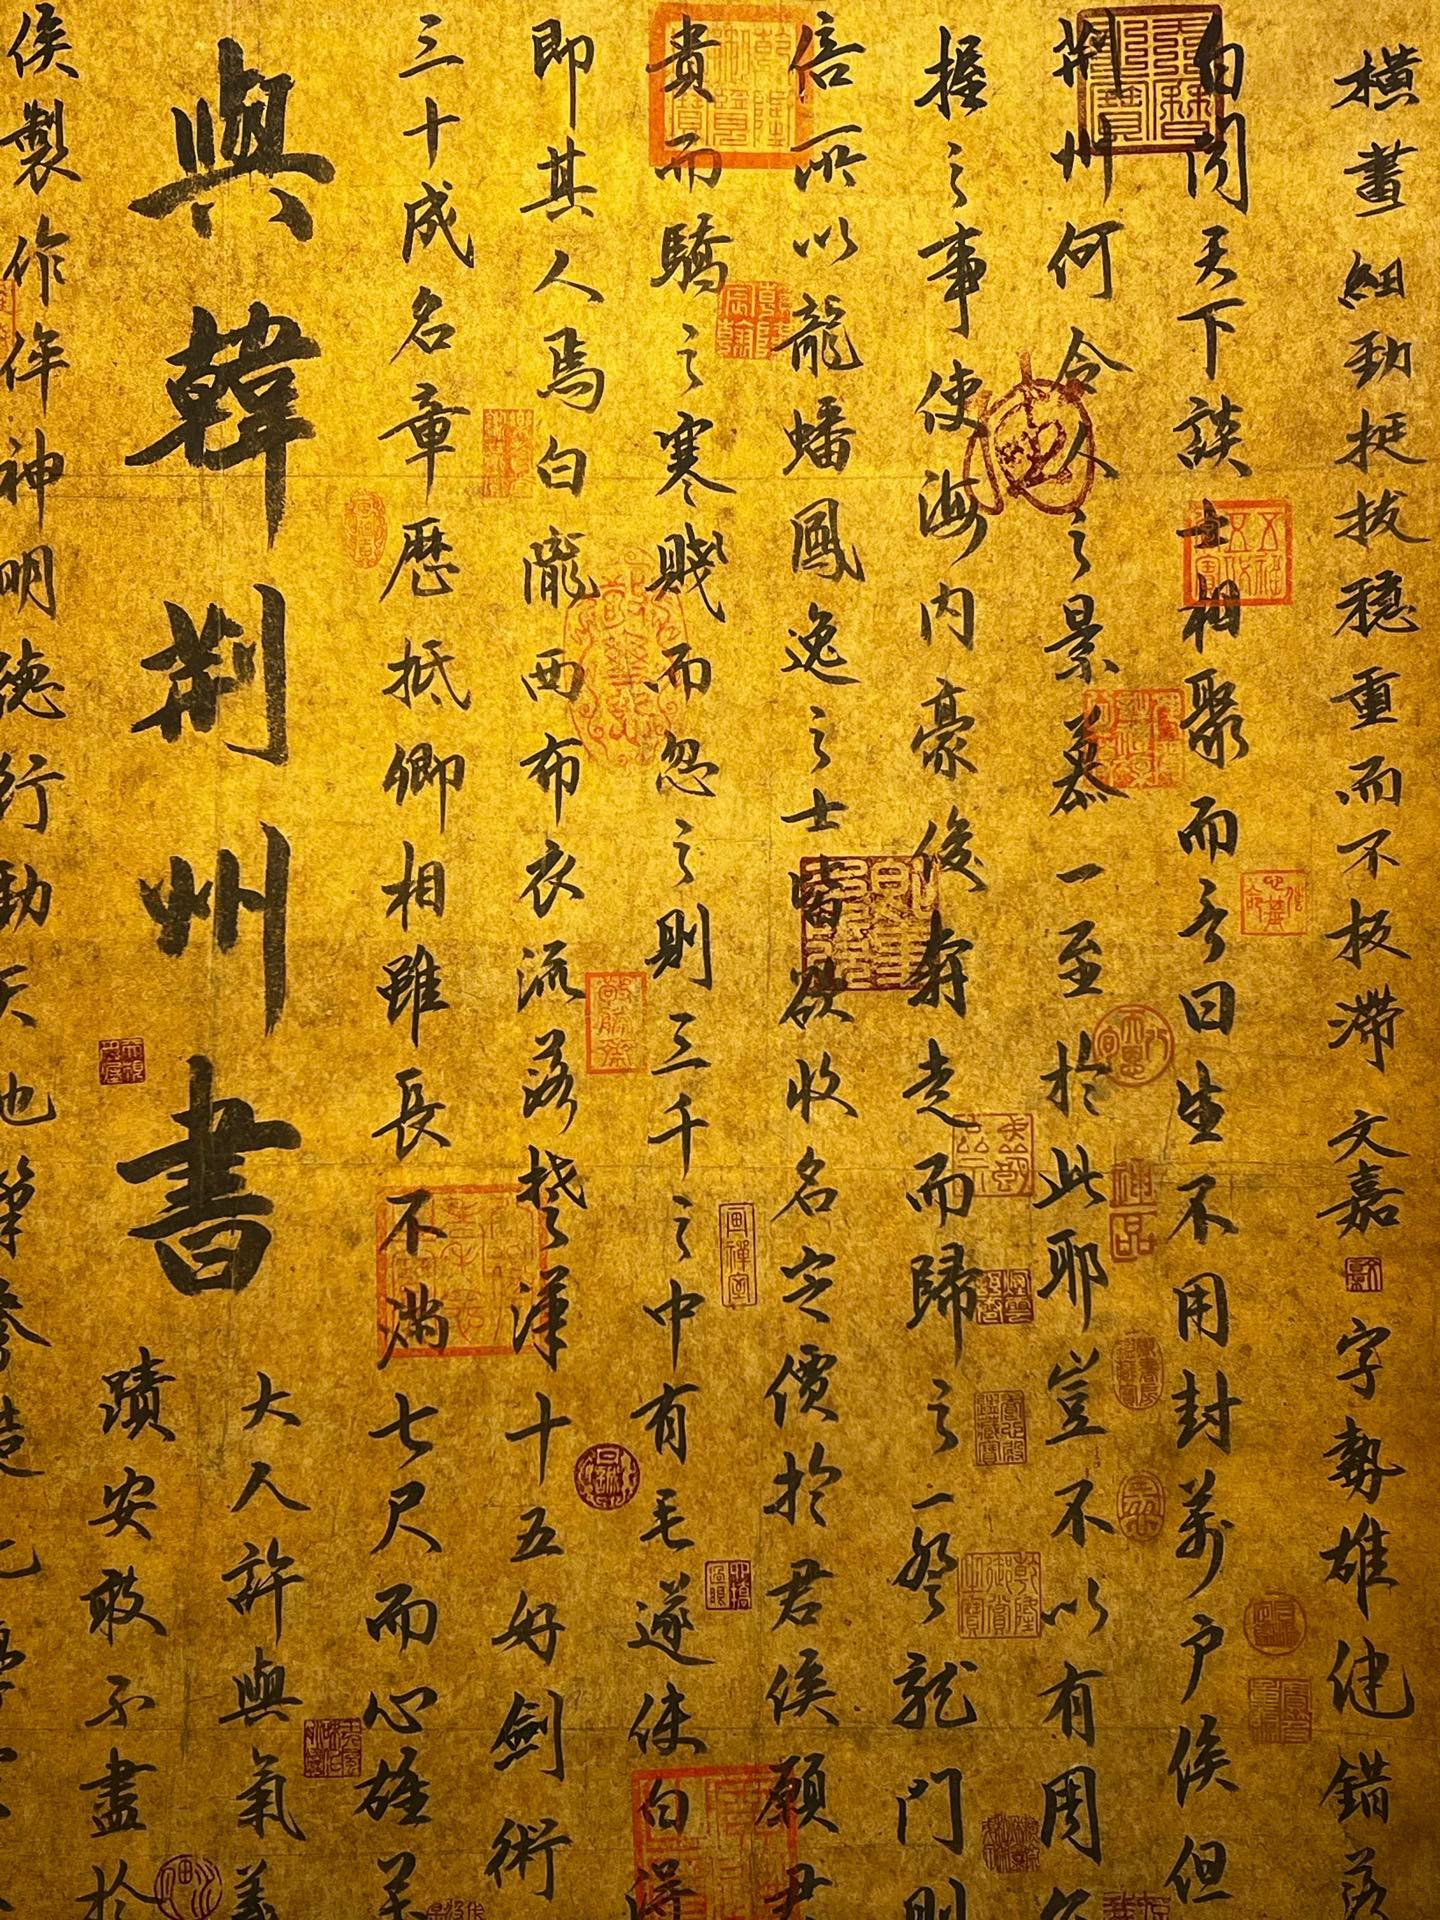 橫畫細勁挺拔穩重而不板滯 文嘉 字勢雄健錯落
白聞天下談士相聚而言曰生不用封萬戶侯但
荊州何令人之景慕一至於此耶豈不以有周公
握之事使海內豪俊奔走而歸之一登龍門則
倍所以龍蟠鳳逸之士皆欲收名定價於君侯願君
貴而驕之寒賤而忽之則三千之中有毛遂使白得
即其人焉白隴西布衣流落楚漢十五好劍術
三十成名章歷抵卿相雖長不滿七尺而心雄萬
與韓荊州書
大人許與氣義
蹟安敢不盡於
侯製作侔神明德行動天地筆參造化
神品
乾隆御覽之寶